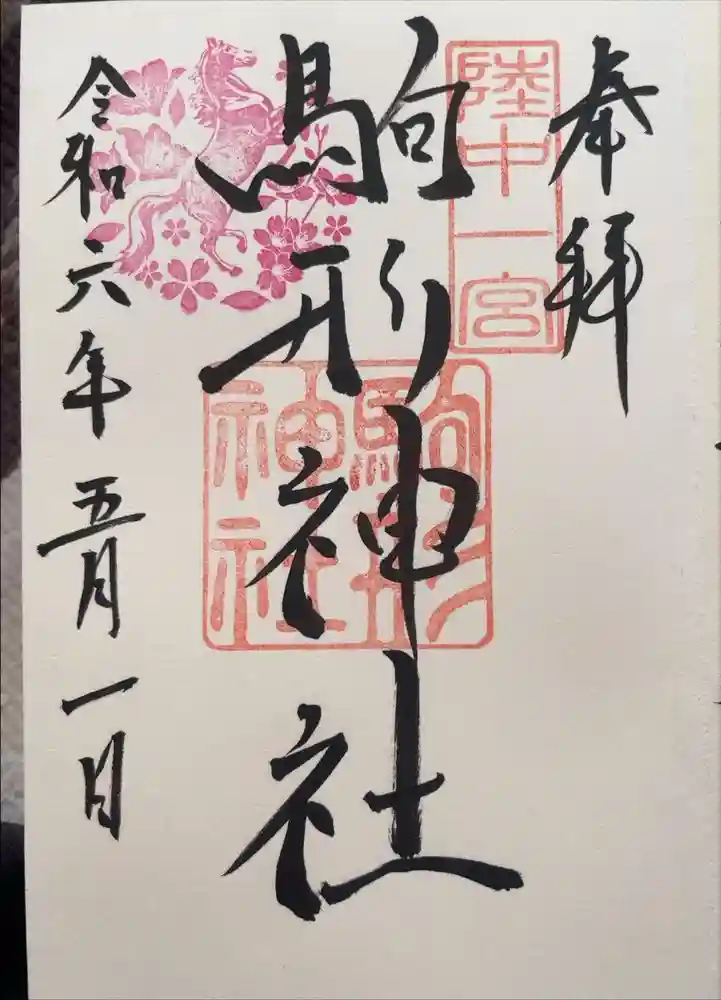 奉拝
陸中一宮
駒形神社
駒形
神社
令和六年五月一日